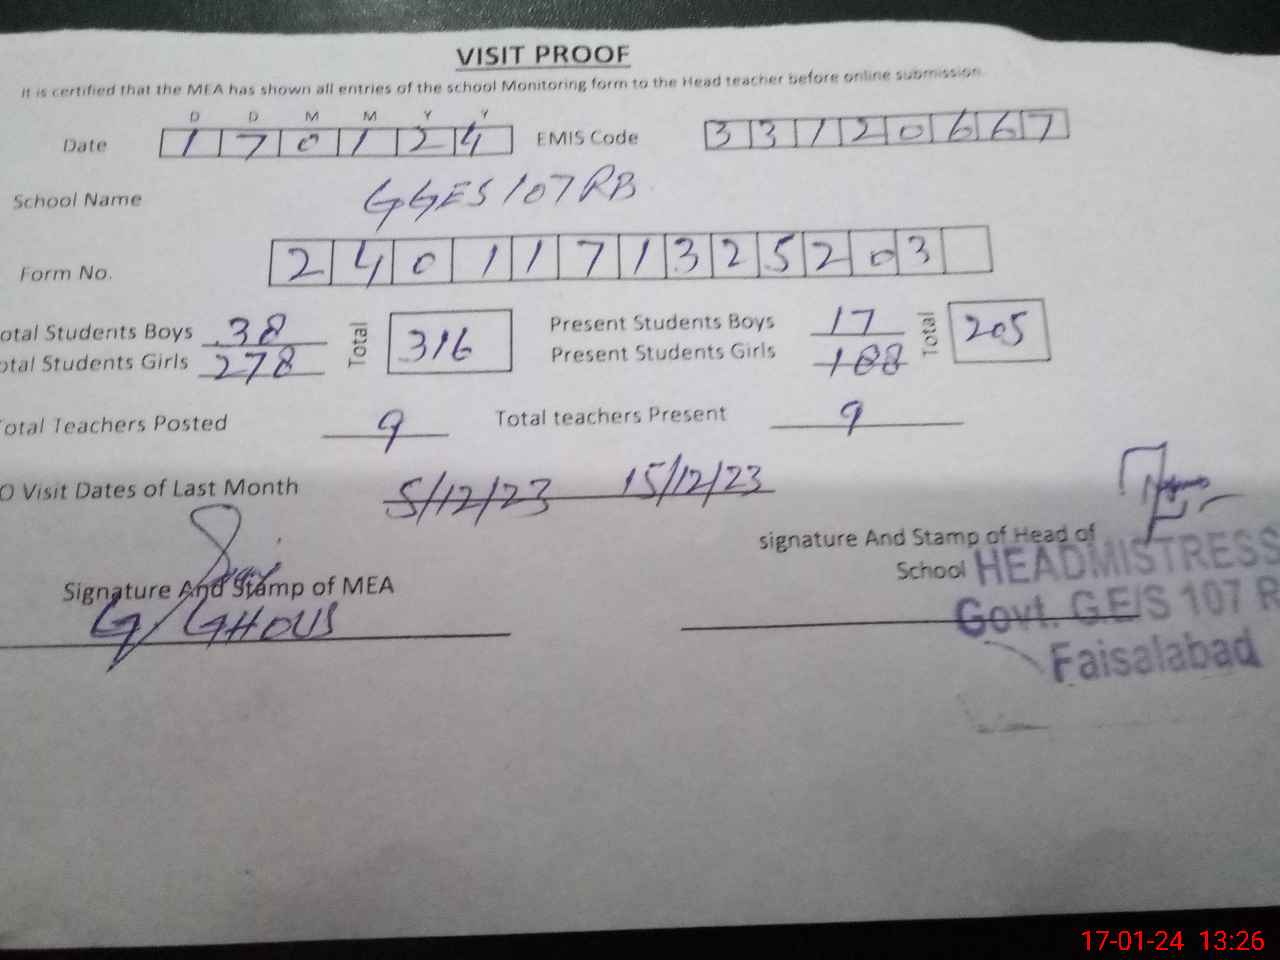 VISIT PROOF
It is certified that the MEA has shown all entries of the school Monitoring form to the Head teacher before online submission.
D D M M Y Y
Date 1 7 0 1 2 4 EMIS Code 3 3 1 2 0 6 6 7
School Name GGES 107 RB
Form No. 2 4 0 1 1 7 1 3 2 5 2 0 3
otal Students Boys 38 Total 316 Present Students Boys 17 Total 205
otal Students Girls 278 Present Students Girls 188
Total Teachers Posted 9 Total teachers Present 9
O Visit Dates of Last Month 5/12/23 15/12/23
signature And Stamp of Head of
School
HEADMISTRESS
Govt. G.E/S 107 R
Faisalabad
Signature And Stamp of MEA
G/GHOUS
17-01-24 13:26